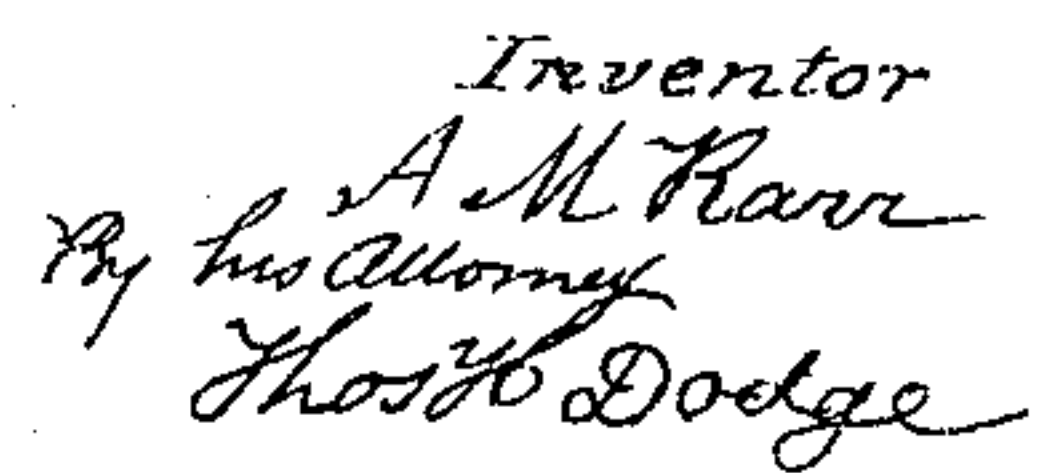 Inventor
A M Karr
By his Attorney
Thos H Dodge